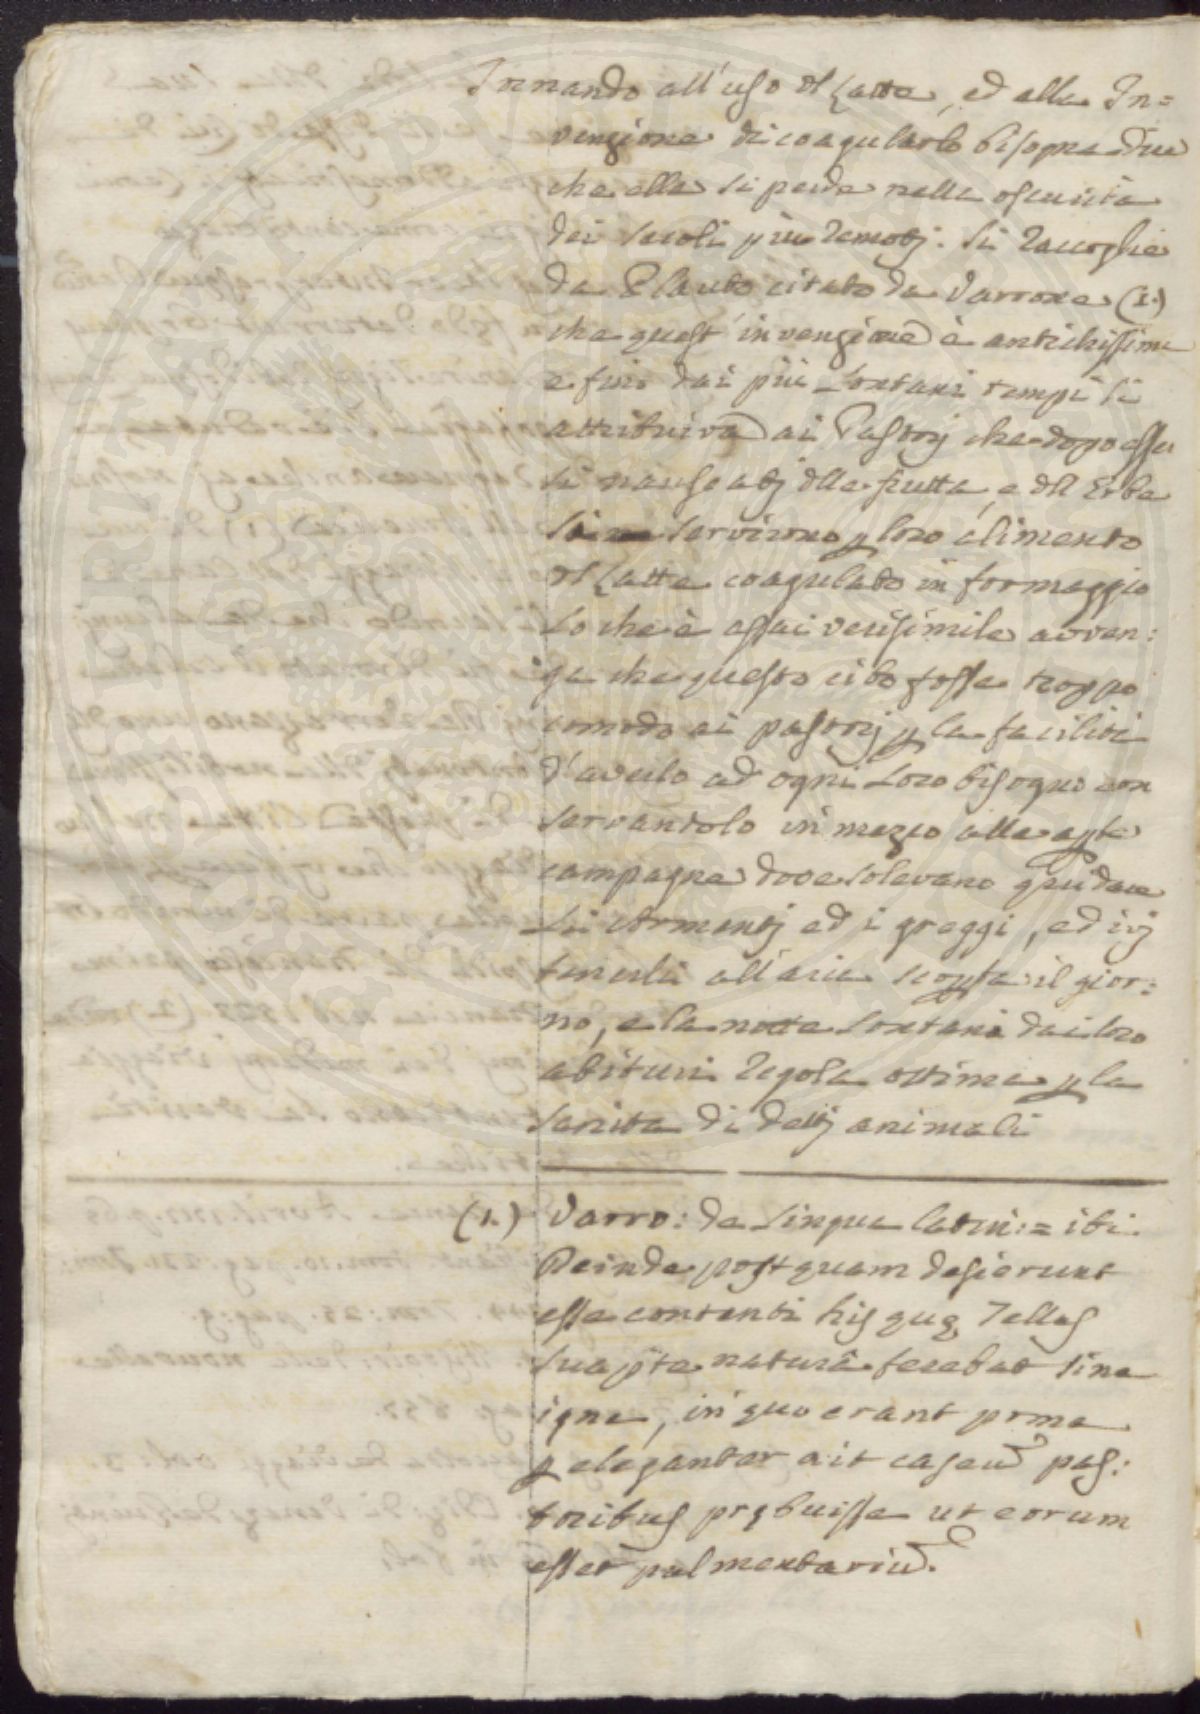 Tornando all'uso dl Latte, ed alla In=
venzione di coagularlo bisogna dire
che ella si perde nella oscurità
dei secoli più remotj. Si raccoglie
da Plauto citato da Varrone (1.)
che quest'invenzione è antichissima
e fino dai più lontani tempi si
attribuiva ai Pastorj che dopo esser
si nauseatj dlle frutta, e dll Erbe
si servirono p loro alimento
dl Latte coagulato in formaggio
Lo che è assai verisimile avven:
ga che questo cibo fosse troppo
comodo ai pastorj p la facilità
d'averlo ad ogni loro bisogno con
servandolo in mezzo alle apte
campagne dove solevano guidare
Li Armentj ed i greggi, ed ivj
tenerli all'aria scopta il gior:
no, e la notte lontani dai loro
abituri regola ottima p la
sanità di dettj animali
(1.) Varro: de Lingua latin: = ibi
Deinde postquam desierunt
esse contenti his quę Tellus
suapte naturâ ferebat sine
igne, in quo erant poma
p eleganter ait caseũ pas:
toribus prębuisse ut eorum
esset pulmentariũ.